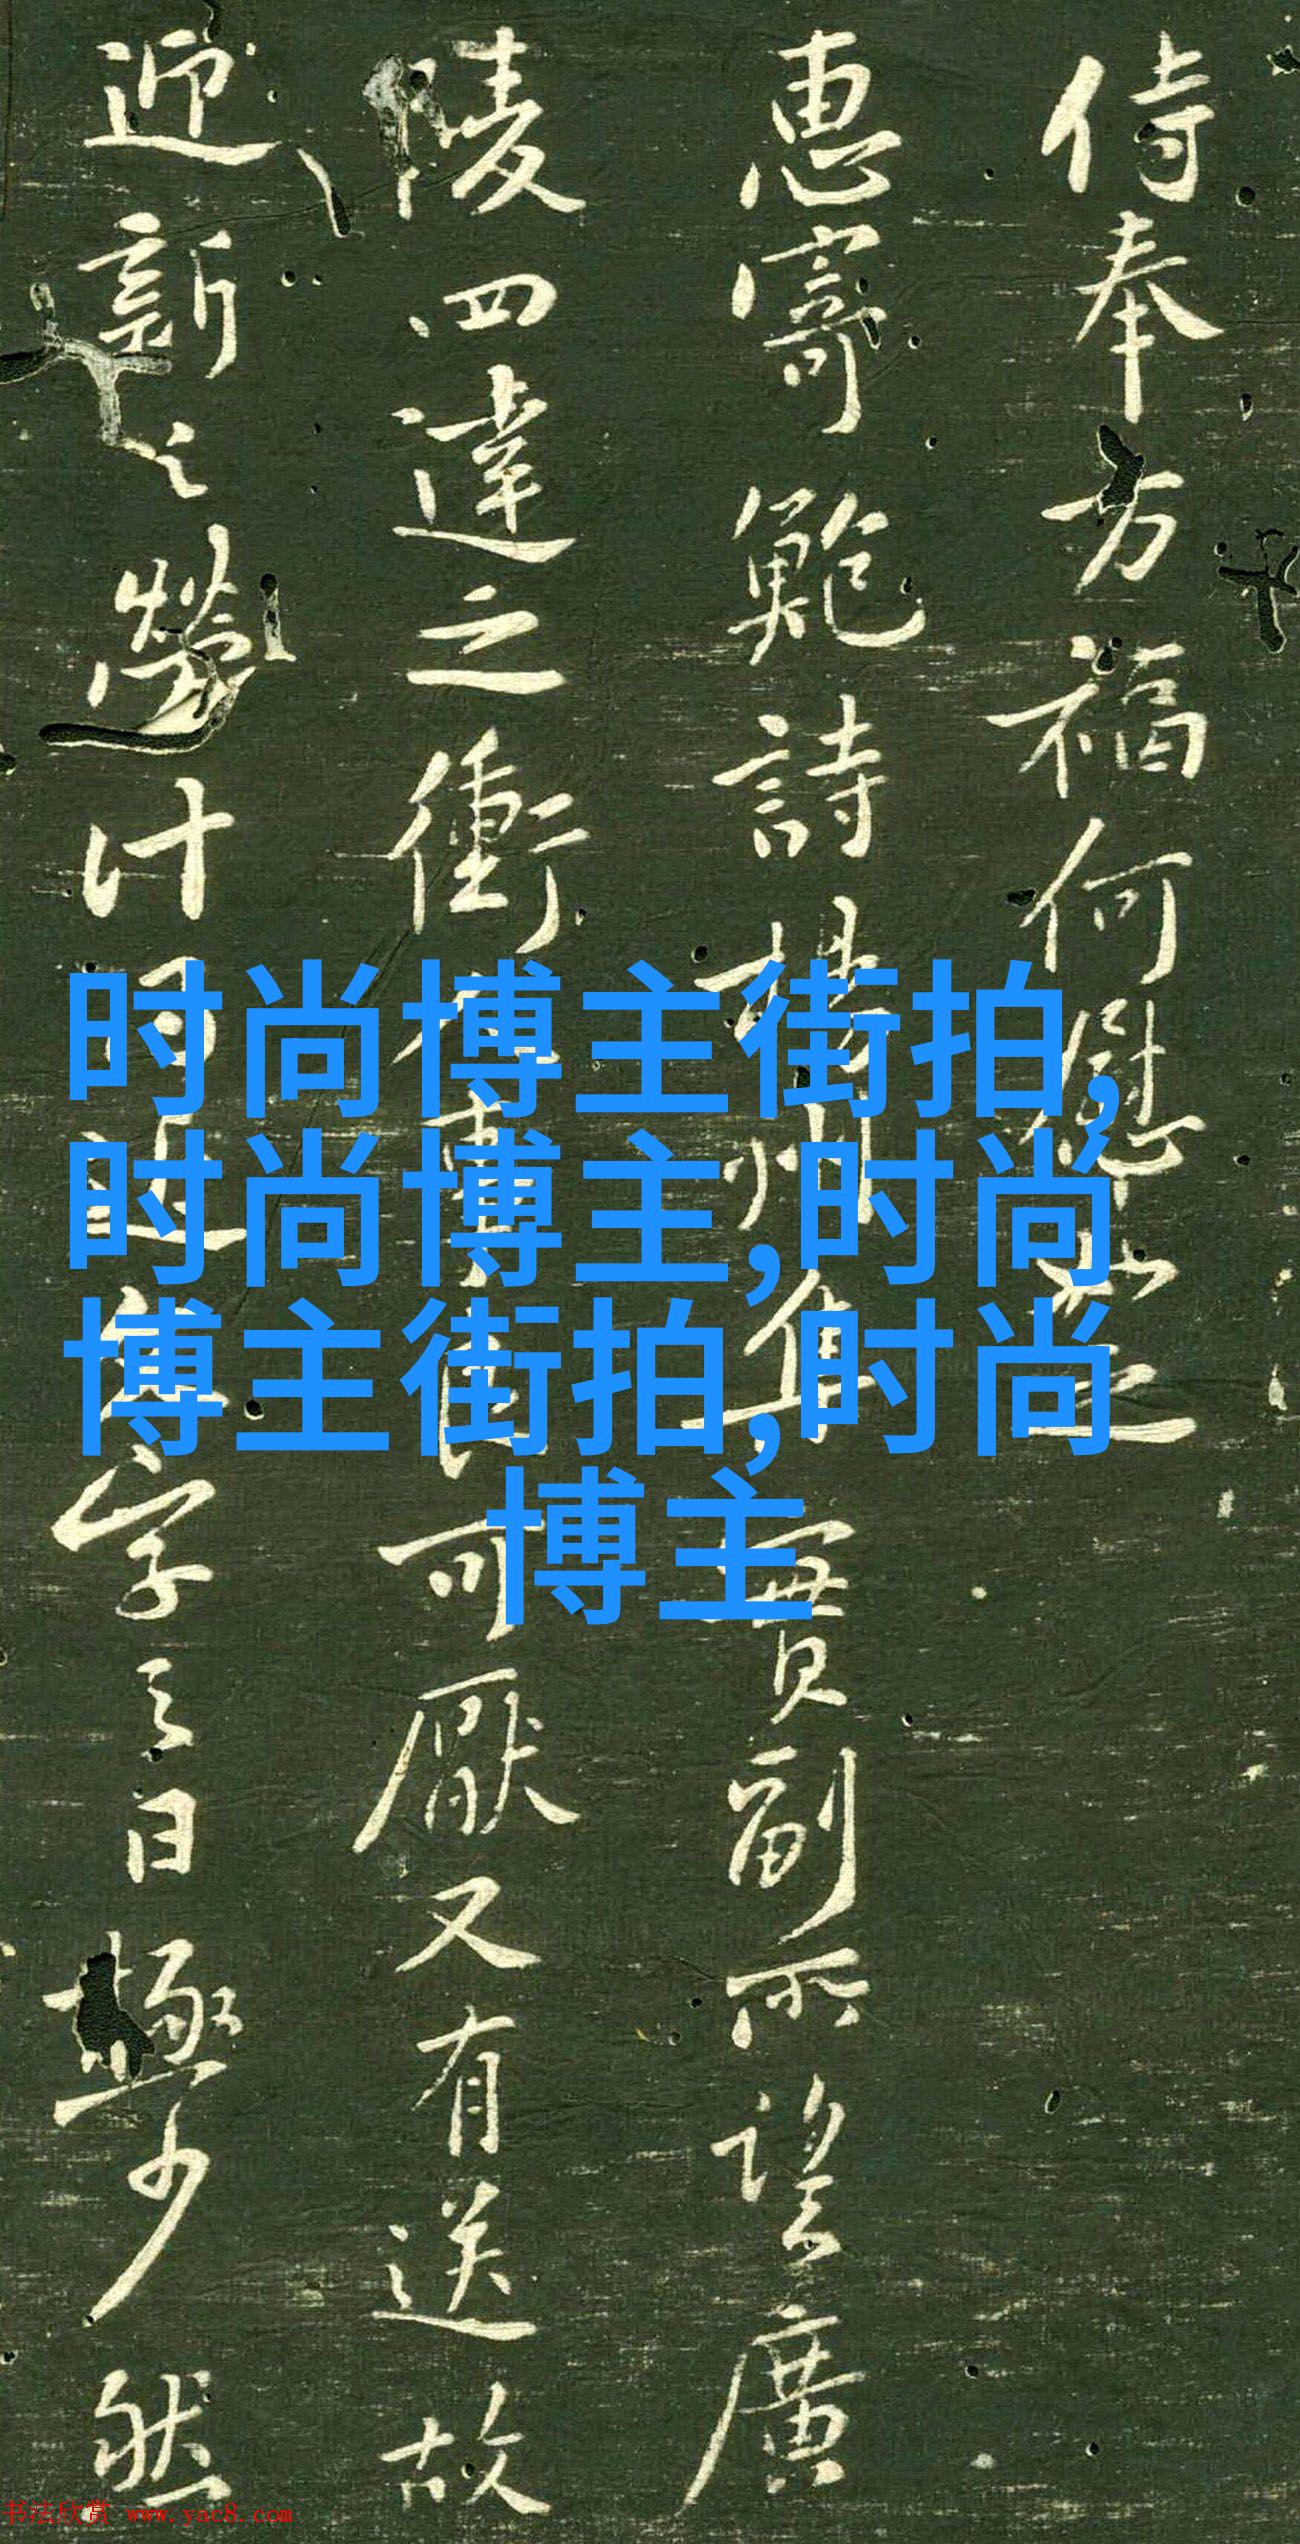 侍奉万福何慰如之
惠寄鲍詩揚州集實副所望廣
陵四達之衝
可厭又有送故
迎新之勞計
字之日極少然
时尚博主街拍,
时尚博主,时尚
博主街拍,时尚
博主
书法欣赏 www.yac8.com